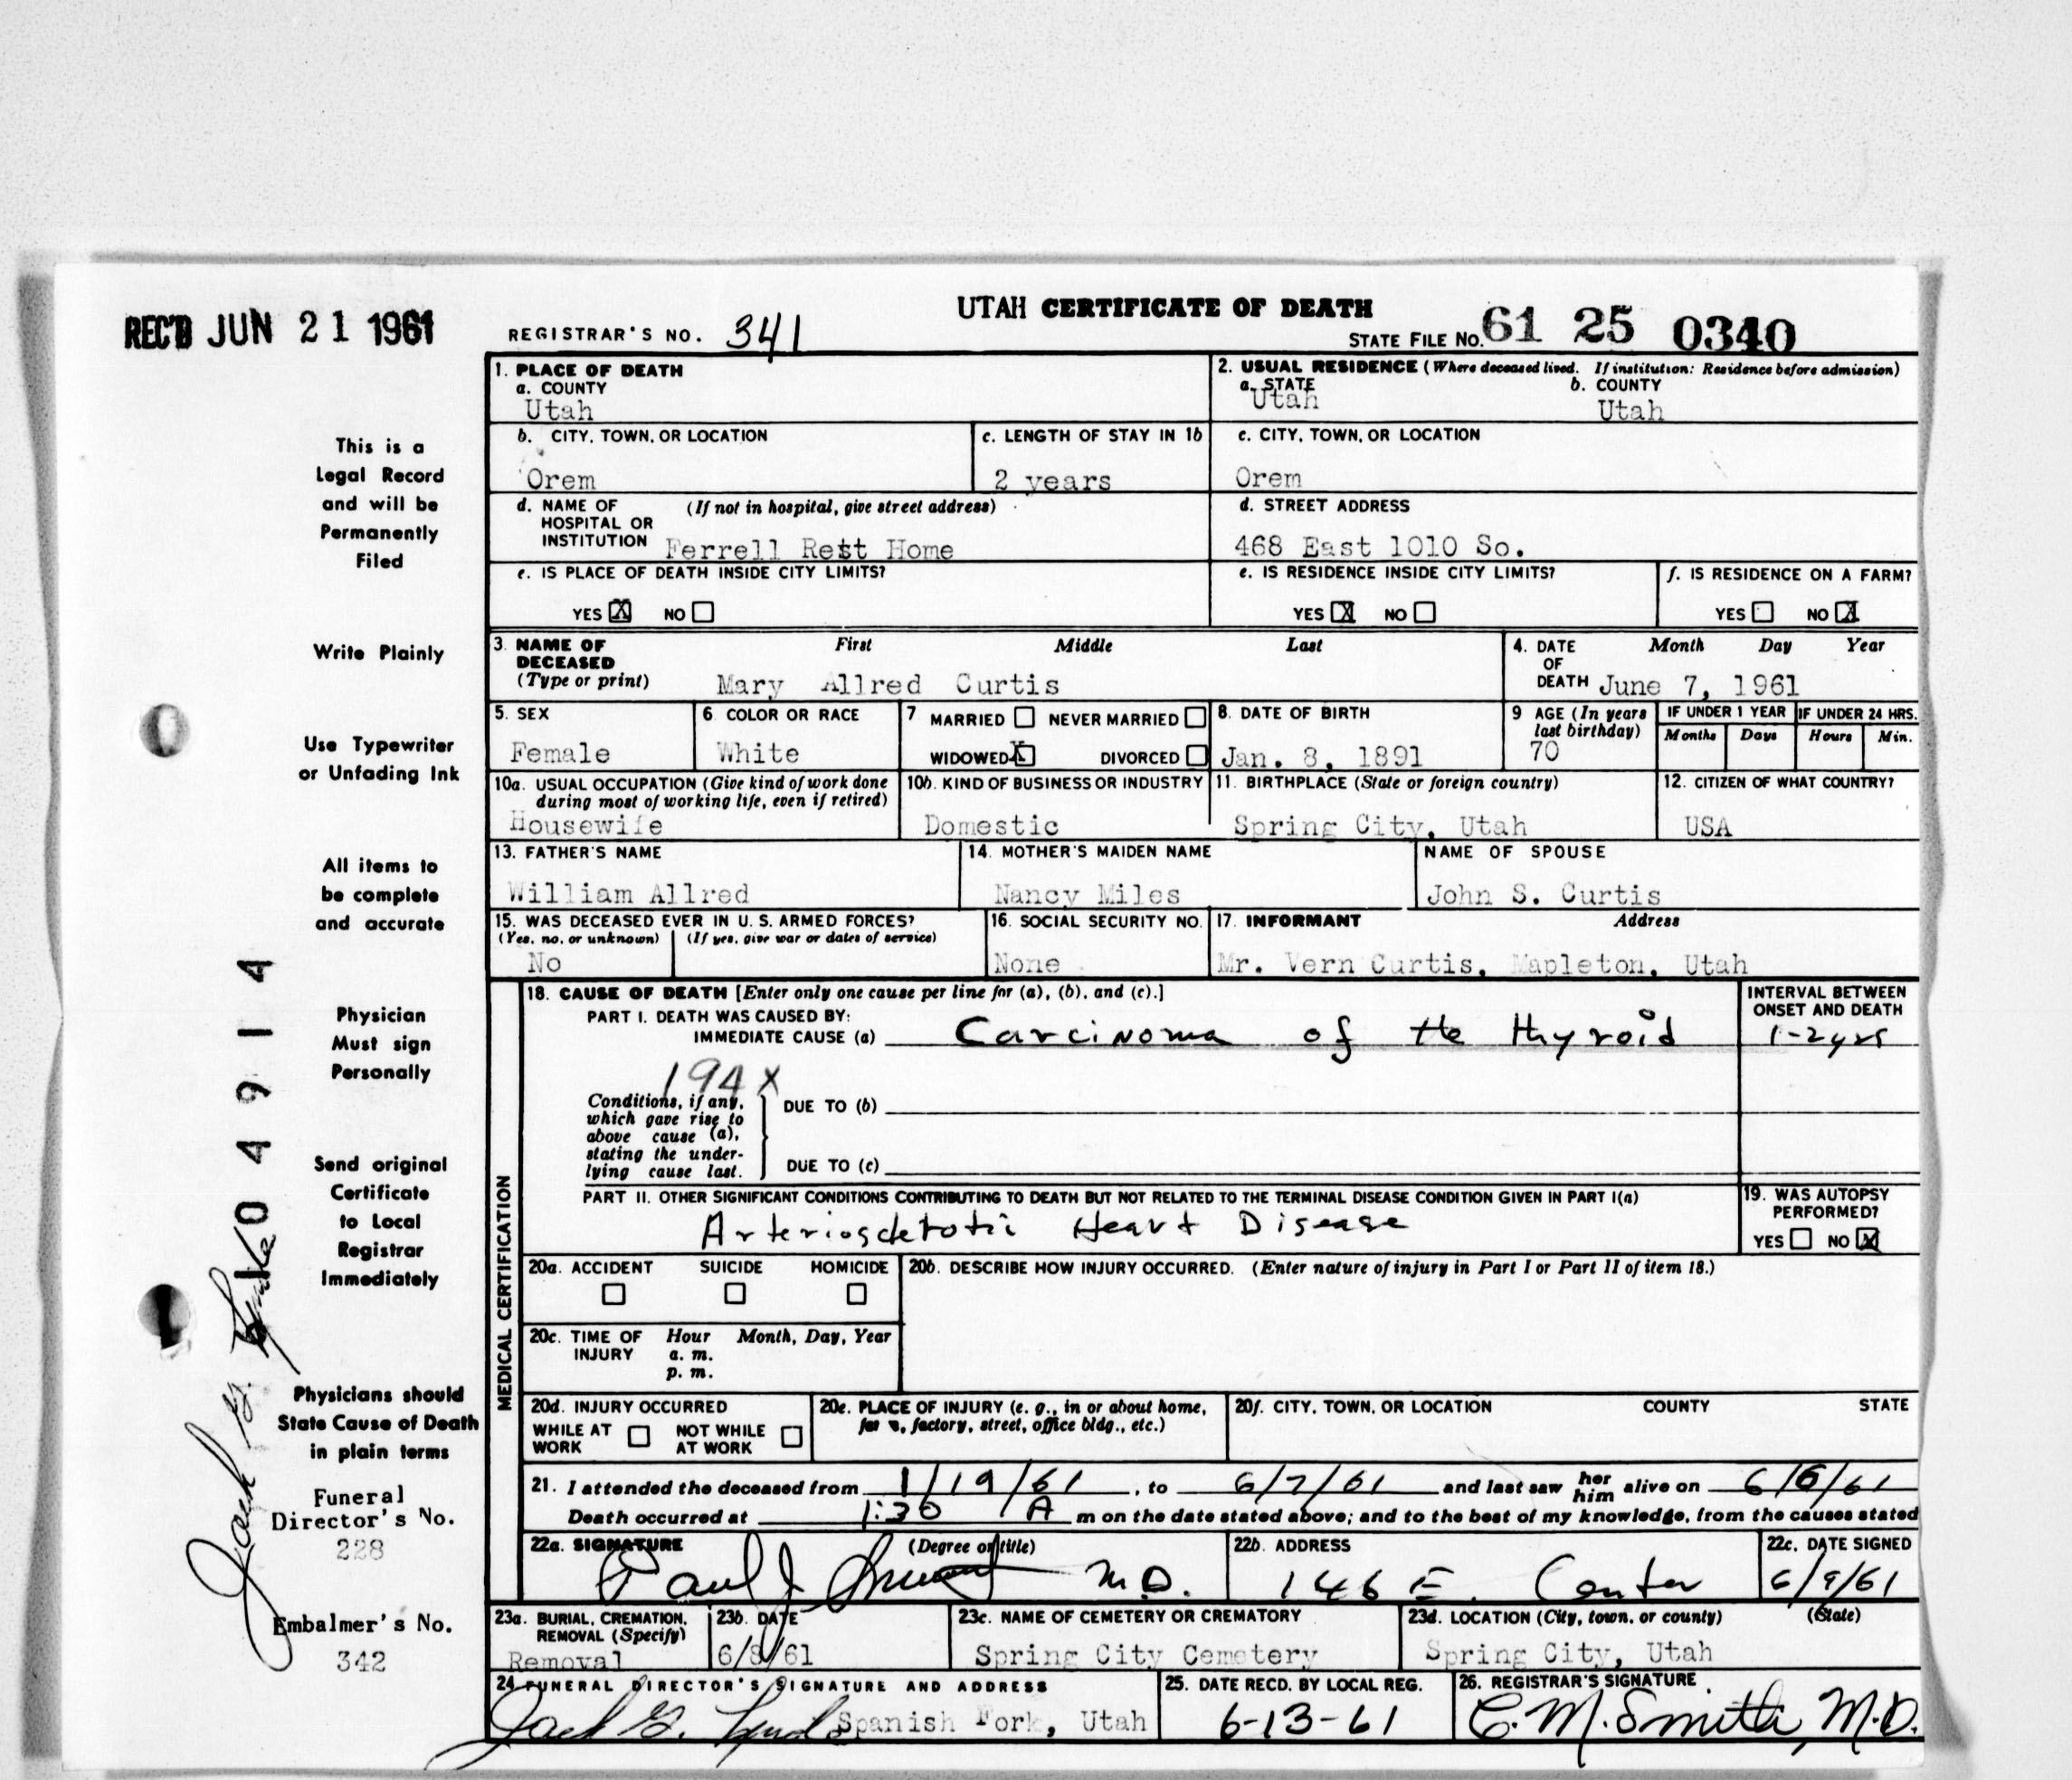 REC'D JUN 21 1961
UTAH CERTIFICATE OF DEATH
REGISTRAR'S NO. 341
STATE FILE NO. 61 25 0340
This is a
Legal Record
and will be
Permanently
Filed
Write Plainly
Use Typewriter
or Unfading Ink
All items to
be complete
and accurate
Physician
Must sign
Personally
Send original
Certificate
to Local
Registrar
Immediately
Physicians should
State Cause of Death
in plain terms
Funeral
Director's No.
228
Embalmer's No.
342
04914
Jack G.
1. PLACE OF DEATH
a. COUNTY
Utah
2. USUAL RESIDENCE (Where deceased lived. If institution: Residence before admission)
a. STATE b. COUNTY
Utah Utah
b. CITY, TOWN, OR LOCATION
Orem
c. LENGTH OF STAY IN 1b
2 years
c. CITY, TOWN, OR LOCATION
Orem
d. NAME OF (If not in hospital, give street address)
HOSPITAL OR
INSTITUTION Ferrell Rest Home
d. STREET ADDRESS
468 East 1010 So.
e. IS PLACE OF DEATH INSIDE CITY LIMITS?
YES X NO
e. IS RESIDENCE INSIDE CITY LIMITS?
YES X NO
f. IS RESIDENCE ON A FARM?
YES NO X
3. NAME OF First Middle Last
DECEASED
(Type or print) Mary Allred Curtis
4. DATE Month Day Year
OF
DEATH June 7, 1961
5. SEX
Female
6. COLOR OR RACE
White
7 MARRIED NEVER MARRIED
WIDOWED X DIVORCED
8. DATE OF BIRTH
Jan. 8, 1891
9 AGE (In years
last birthday)
70
IF UNDER 1 YEAR
Months Days
IF UNDER 24 HRS.
Hours Min.
10a. USUAL OCCUPATION (Give kind of work done
during most of working life, even if retired)
Housewife
10b. KIND OF BUSINESS OR INDUSTRY
Domestic
11. BIRTHPLACE (State or foreign country)
Spring City, Utah
12. CITIZEN OF WHAT COUNTRY?
USA
13. FATHER'S NAME
William Allred
14. MOTHER'S MAIDEN NAME
Nancy Miles
NAME OF SPOUSE
John S. Curtis
15. WAS DECEASED EVER IN U. S. ARMED FORCES?
(Yes, no, or unknown) (If yes, give war or dates of service)
No
16. SOCIAL SECURITY NO.
None
17. INFORMANT Address
Mr. Vern Curtis, Mapleton, Utah
MEDICAL CERTIFICATION
18. CAUSE OF DEATH [Enter only one cause per line for (a), (b), and (c).]
PART I. DEATH WAS CAUSED BY:
IMMEDIATE CAUSE (a) Carcinoma of the thyroid
INTERVAL BETWEEN
ONSET AND DEATH
1-2 yrs
194 X
Conditions, if any,
which gave rise to
above cause (a),
stating the under-
lying cause last.
DUE TO (b)
DUE TO (c)
PART II. OTHER SIGNIFICANT CONDITIONS CONTRIBUTING TO DEATH BUT NOT RELATED TO THE TERMINAL DISEASE CONDITION GIVEN IN PART I(a)
Arteriosclerotic Heart Disease
19. WAS AUTOPSY
PERFORMED?
YES NO X
20a. ACCIDENT SUICIDE HOMICIDE
20b. DESCRIBE HOW INJURY OCCURRED. (Enter nature of injury in Part I or Part II of item 18.)
20c. TIME OF Hour Month, Day, Year
INJURY a. m.
p. m.
20d. INJURY OCCURRED
WHILE AT NOT WHILE
WORK AT WORK
20e. PLACE OF INJURY (e. g., in or about home,
farm, factory, street, office bldg., etc.)
20f. CITY, TOWN, OR LOCATION COUNTY STATE
21. I attended the deceased from 1/19/61, to 6/7/61 and last saw her him alive on 6/6/61
Death occurred at 1:30 A m on the date stated above; and to the best of my knowledge, from the causes stated
22a. SIGNATURE (Degree or title)
Paul J. M.D.
22b. ADDRESS
146 E. Center
22c. DATE SIGNED
6/9/61
23a. BURIAL, CREMATION,
REMOVAL (Specify)
Removal
23b. DATE
6/8/61
23c. NAME OF CEMETERY OR CREMATORY
Spring City Cemetery
23d. LOCATION (City, town, or county) (State)
Spring City, Utah
24 FUNERAL DIRECTOR'S SIGNATURE AND ADDRESS
Jack G. Spanish Fork, Utah
25. DATE RECD. BY LOCAL REG.
6-13-61
26. REGISTRAR'S SIGNATURE
C. M. Smith, M.D.